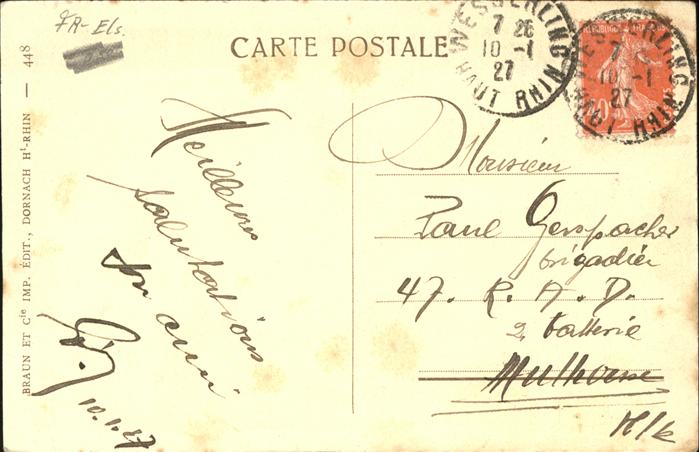 FR-Els.
CARTE POSTALE
WESSERLING
7 26
10 -1
27
HAUT RHIN
WESSERLING
7
10 -1
27
HAUT RHIN
BRAUN ET Cie IMP. ÉDIT., DORNACH Ht-RHIN — 448
Meilleures
salutations
ami
10.1.27
Monsieur
Paul Gerspacher
brigadier
47. R. A. D.
2. batterie
Mulhouse